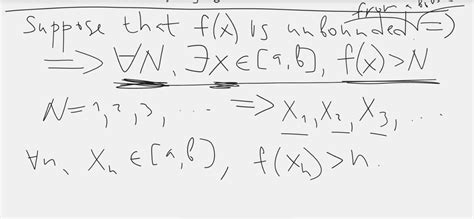 from above
Suppose that f(x) is unbounded =>
=> ∀N, ∃x∈[a,b], f(x)>N
N=1,2,3, ... => x₁, x₂, x₃, ...
∀n, xₙ ∈[a,b], f(xₙ)>n.